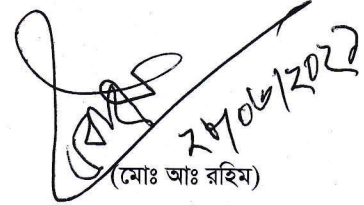 ২৮/০৬/২০২১
(মোঃ আঃ রহিম)